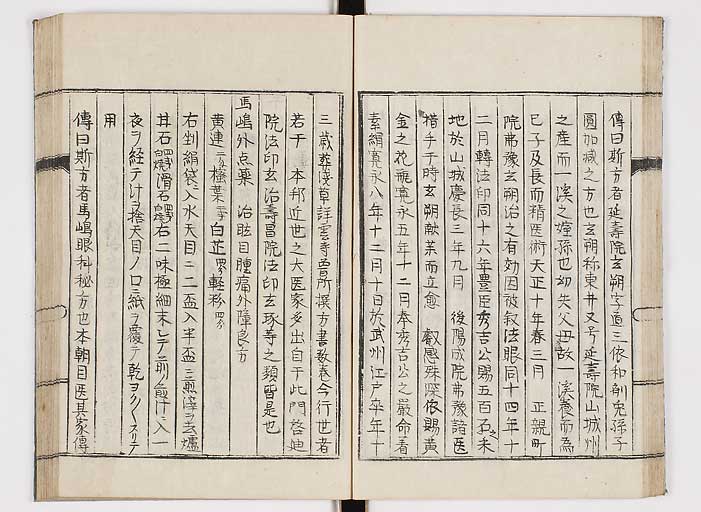 傳曰斯方者延壽院玄朔字道三依和剤兔孫子
圓加减之方也玄朔称東井又号延壽院山城州
之産而一溪之姪孫也幼失父母故一溪養而為
己子及長而精医術天正十年春三月 正親町
院弗豫玄朔治之有効因被叙法眼同十四年十
二月轉法印同十六年豊臣秀吉公賜五百石之未
地於山城慶長三年九月 後陽成院弗豫諸医
措手于時玄朔献薬而立愈 叡感殊深依賜黄
金之花瓶寛永五年十二月奉秀吉公之嚴命着
素絹寛永八年十二月十日於武州江戸卒年十
三歳葬浅草詳雲寺曽所撰方書数巻今行世者
若干 本邦近世之大医家多出自于此門啓迪
院法印玄治壽昌院法印玄琢等之類皆是也
馬嶋外点薬 治眩目腫痛外障良方
黄連 白芷 軽粉
右剉絹袋入水天目ニ二盃入半盃ニ煎滓ヲ去爐
甘石 滑石 右二味極細末シテ前煎汁ニ入一
夜ヲ経テ汁ヲ捨天目ノ口ニ紙ヲ覆テ乾ヲクスリテ
用
傳曰斯方者馬嶋眼科秘方也本朝目医其家傳